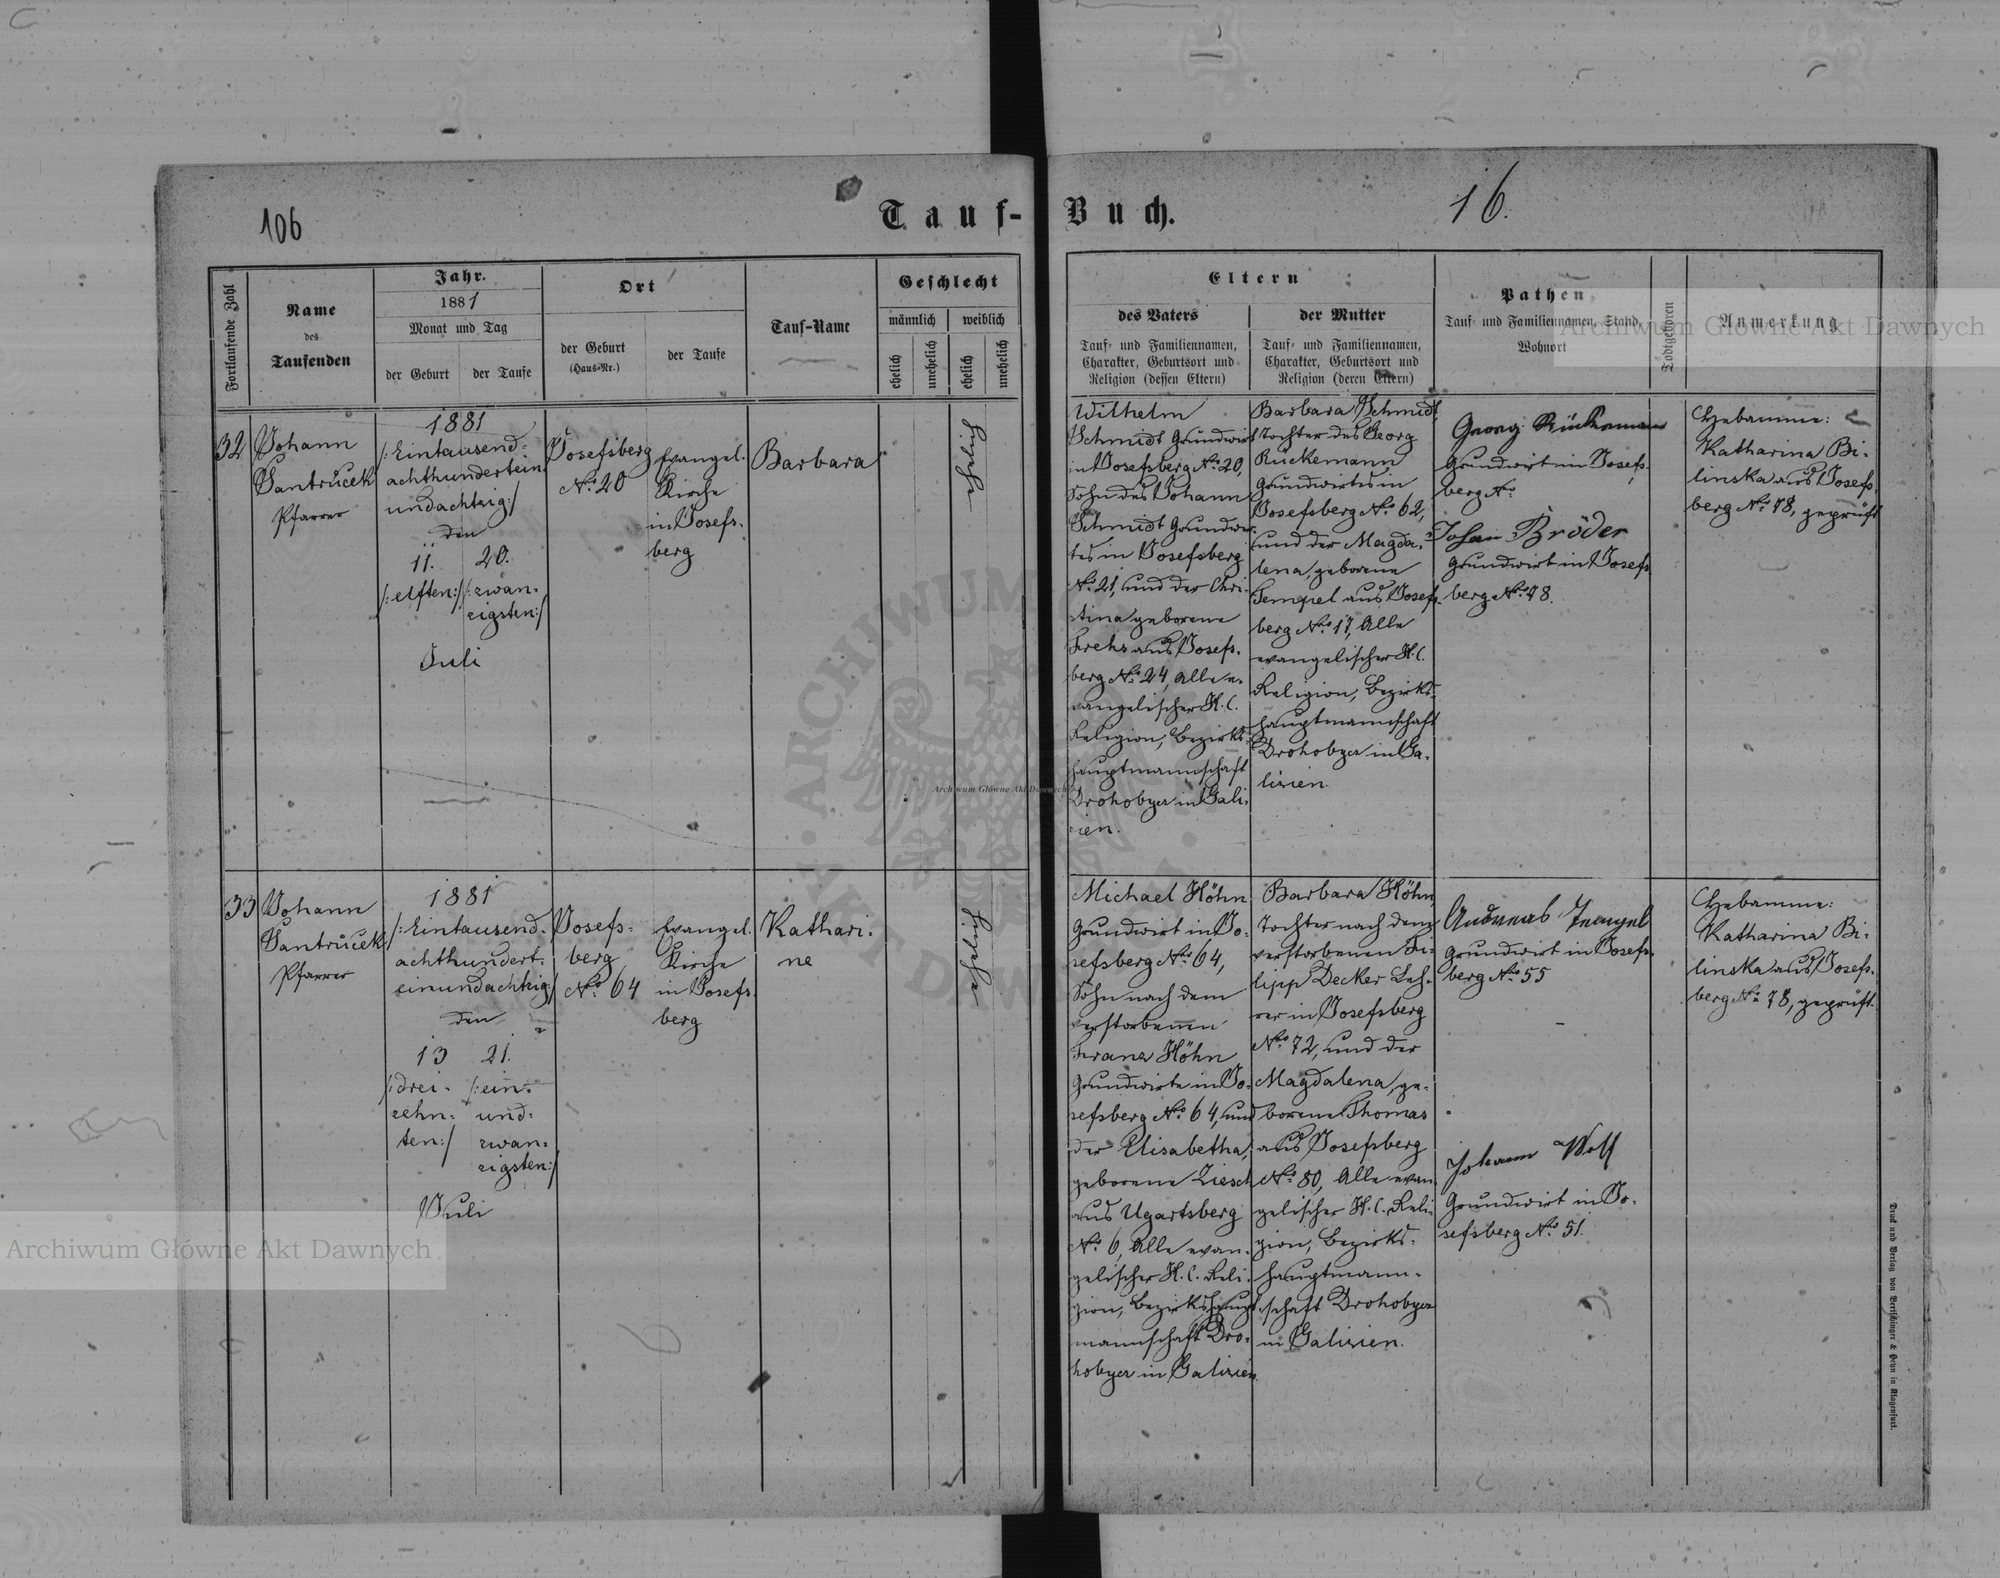 106
Tauf-Buch.
16.
Fortlaufende Zahl
Name
des
Taufenden
Jahr.
1881
Monat und Tag
der Geburt
der Taufe
Ort
der Geburt
(Haus-Nr.)
der Taufe
Tauf-Name
Geschlecht
männlich
weiblich
ehelich
unehelich
ehelich
unehelich
Eltern
des Vaters
Tauf- und Familiennamen,
Charakter, Geburtsort und
Religion (dessen Eltern)
der Mutter
Tauf- und Familiennamen,
Charakter, Geburtsort und
Religion (deren Eltern)
Pathen
Tauf- und Familiennamen, Stand,
Wohnort
Todtgeboren
Anmerkung
32
Johann
Santrůček
Pfarrer
1881
/:Eintausend-
achthundertein
undachtzig:/
den
11. 20.
/:elften:/ /:zwan-
zigsten:/
Juli
Josefsberg
No. 20
Evangel.
Kirche
in Josefs-
berg
Barbara
ehelich
Wilhelm
Schmidt Grundwirt
in Josefsberg No. 20,
Sohn des Johann
Schmidt Grundwir-
tes in Josefsberg
No. 21, und der Chri-
stina geborene
Frehs aus Josefs-
berg No. 24, Alle e-
vangelischer H. C.
Religion, Bezirks-
hauptmannschaft
Drohobycz in Gali-
zien.
Barbara Schmidt,
Tochter des Georg
Rückemann
Grundwirtes in
Josefsberg No. 62,
und der Magda-
lena, geborene
Tempel aus Josefs-
berg No. 17, Alle
evangelischer H. C.
Religion, Bezirks-
hauptmannschaft
Drohobycz in Ga-
lizien.
Georg Rückemann
Grundwirt in Josefs-
berg No.
Johan Bröder
Grundwirt in Josefs-
berg No. 78.
Hebamme:
Katharina Bi-
linska aus Josefs-
berg No. 78, geprüft
33
Johann
Santrůček
Pfarrer
1881
/:Eintausend-
achthundert-
einundachtzig:/
den
13 21.
/:drei- /:ein-
zehn- und-
ten:/ zwan-
zigsten:/
Juli
Josefs-
berg
No. 64
Evangel.
Kirche
in Josefs-
berg
Kathari-
ne
ehelich
Michael Höhn
Grundwirt in Jo-
sefsberg No. 64,
Sohn nach dem
verstorbenen
Franz Höhn
Grundwirte in Jo-
sefsberg No. 64, und
der Elisabetha,
geborene Ziesch
aus Ugartsberg
No. 6, Alle evan-
gelischer H. C. Reli-
gion, Bezirkshaupt-
mannschaft Dro-
hobycz in Galizien.
Barbara Höhn,
Tochter nach dem
verstorbenen Fi-
lipp Decker Leh-
rer in Josefsberg
No. 72, und der
Magdalena, ge-
borene Thomas
aus Josefsberg
No. 80, Alle evan-
gelischer H. C. Reli-
gion, Bezirks-
hauptmann-
schaft Drohobycz
in Galizien.
Andreas Tempel
Grundwirt in Josefs-
berg No. 55
Johann Wolf
Grundwirt in Jo-
sefsberg No. 51.
Hebamme:
Katharina Bi-
linska aus Josefs-
berg No. 78, geprüft.
Druck und Verlag von Bertschinger & Heyn in Klagenfurt.
Archiwum Główne Akt Dawnych
Archiwum Główne Akt Dawnych
Archiwum Główne Akt Dawnych